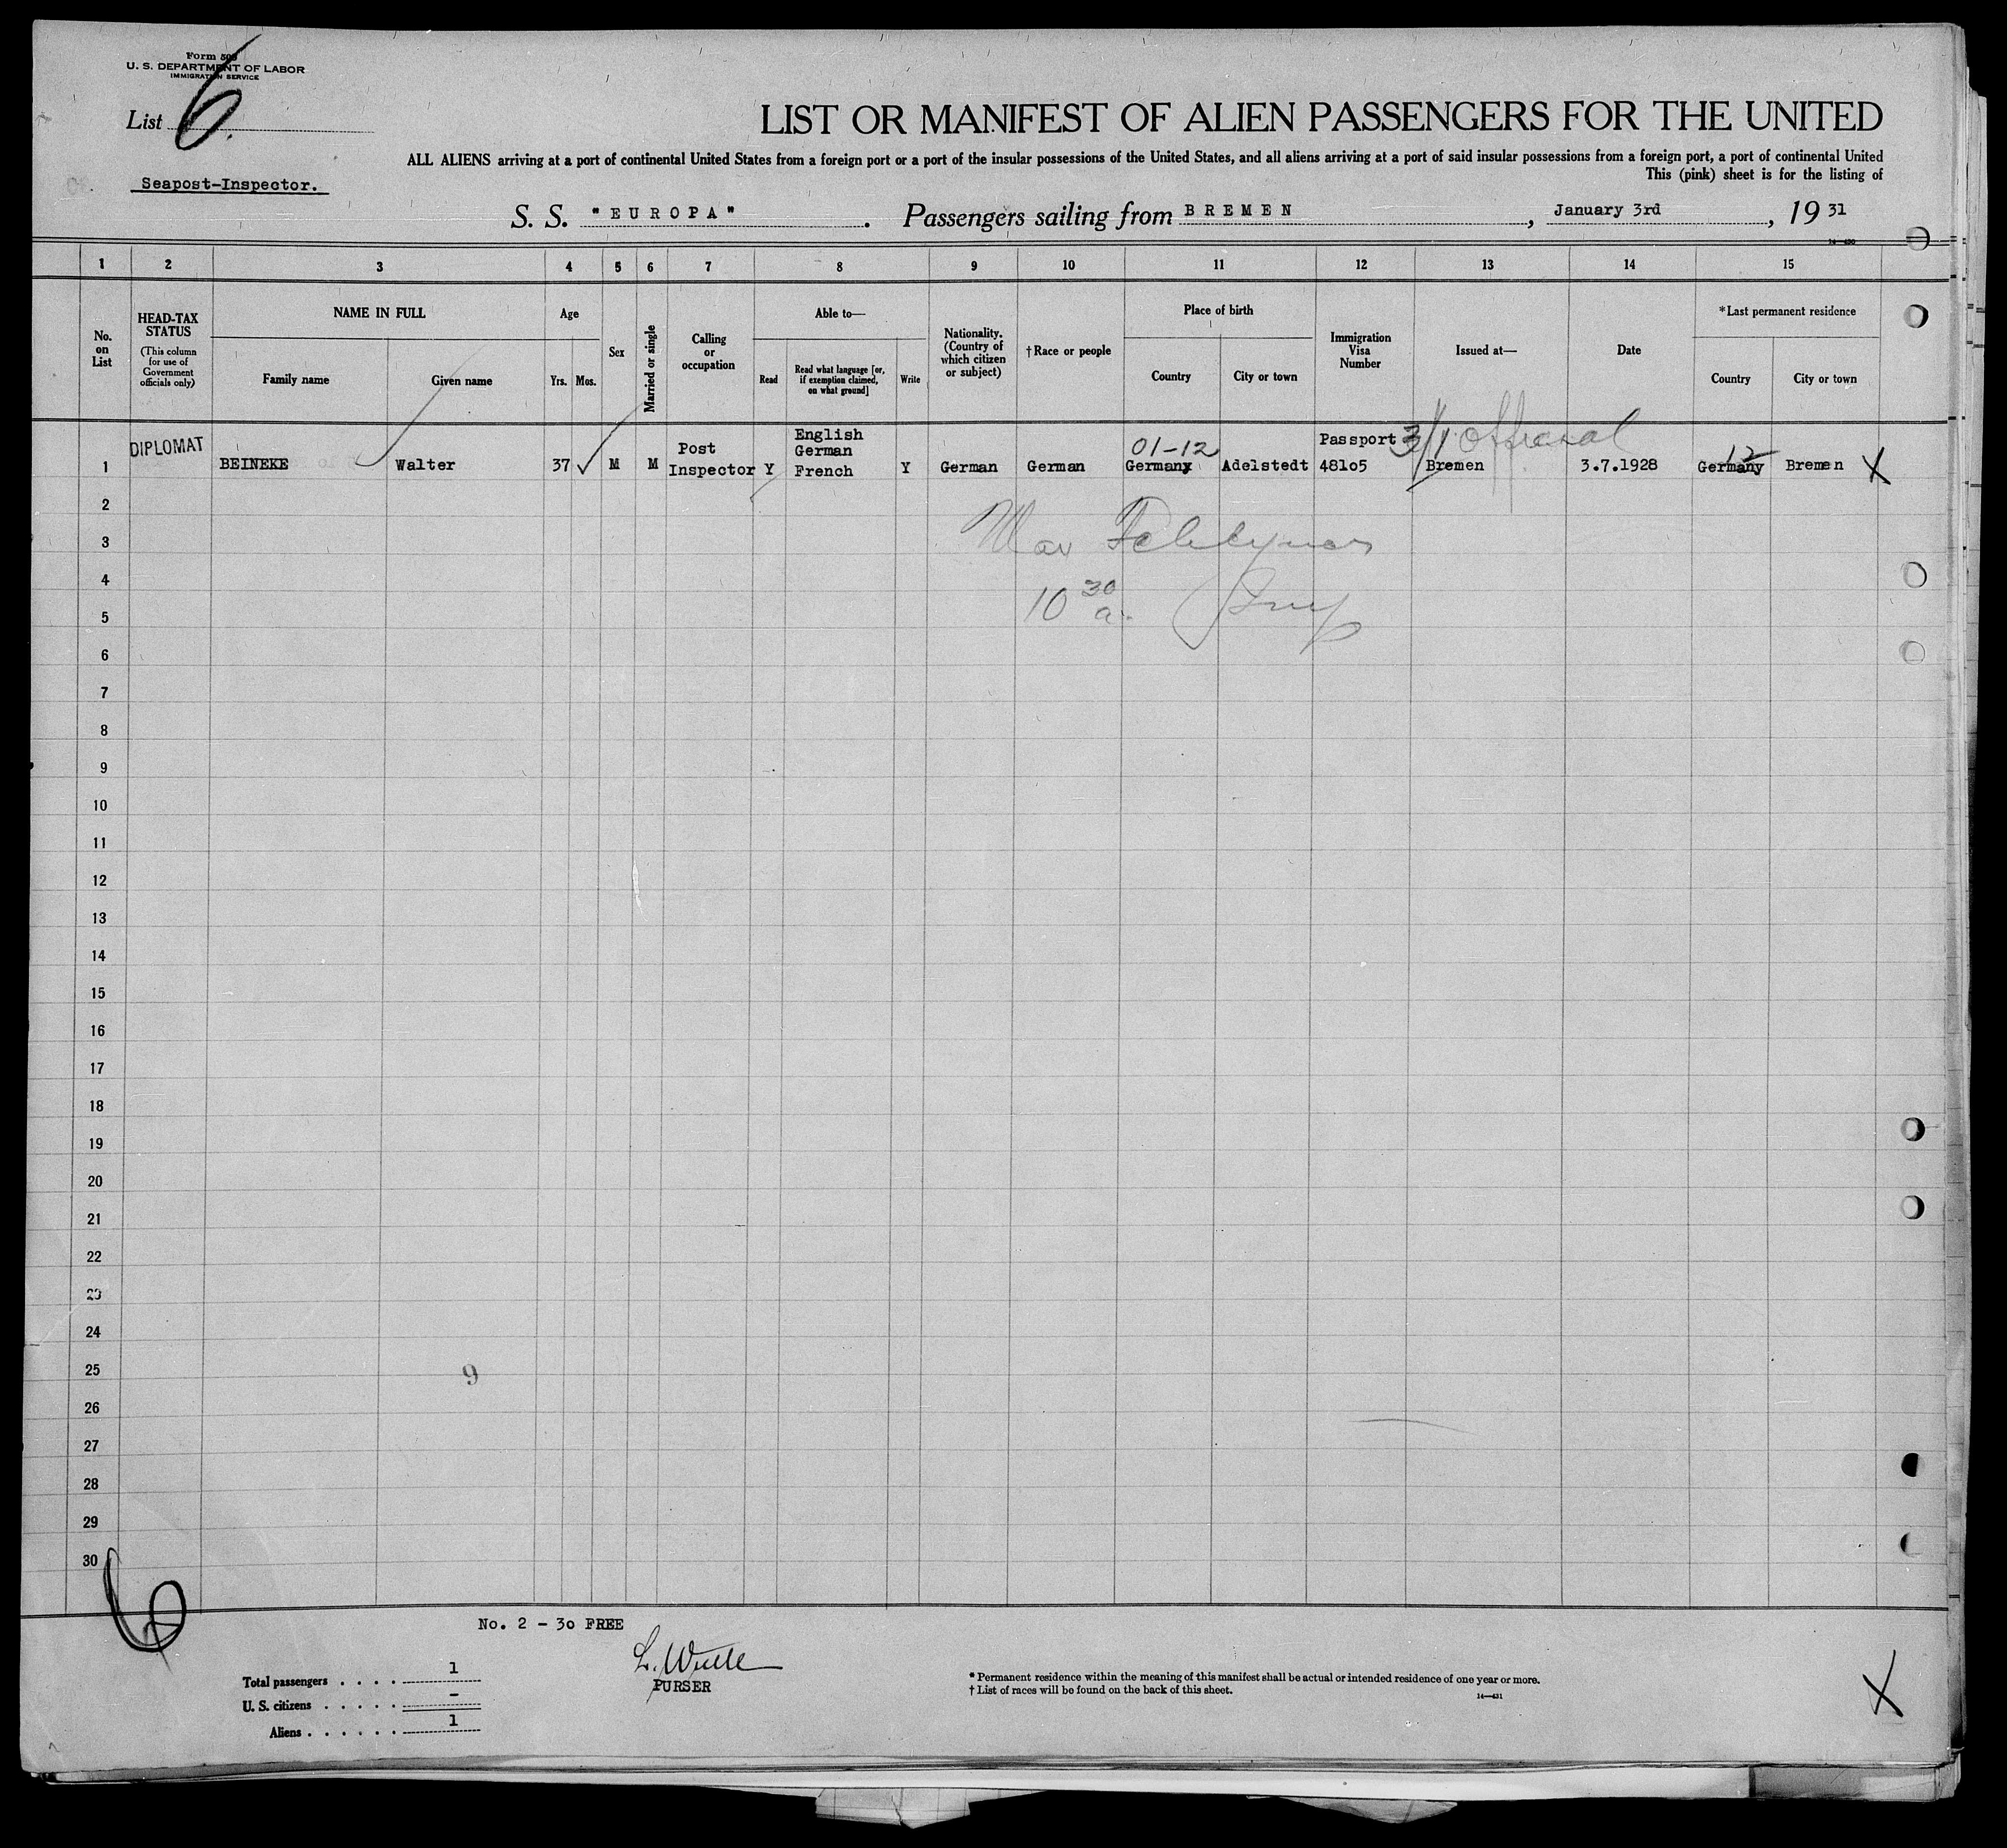 Form 500
U. S. DEPARTMENT OF LABOR
IMMIGRATION SERVICE
List 6.
LIST OR MANIFEST OF ALIEN PASSENGERS FOR THE UNITED
ALL ALIENS arriving at a port of continental United States from a foreign port or a port of the insular possessions of the United States, and all aliens arriving at a port of said insular possessions from a foreign port, a port of continental United
This (pink) sheet is for the listing of
Seapost-Inspector.
S. S. "EUROPA". Passengers sailing from BREMEN, January 3rd, 19 31
1 2 3 4 5 6 7 8 9 10 11 12 13 14 15
No. on List
HEAD-TAX STATUS
(This column for use of Government officials only)
NAME IN FULL
Family name
Given name
Age
Yrs. Mos.
Sex
Married or single
Calling or occupation
Able to—
Read
Read what language [or, if exemption claimed, on what ground]
Write
Nationality. (Country of which citizen or subject)
†Race or people
Place of birth
Country
City or town
Immigration Visa Number
Issued at—
Date
*Last permanent residence
Country
City or town
1 DIPLOMAT BEINEKE Walter 37 M M Post Inspector Y English German French Y German German 01-12 Germany Adelstedt Passport 48105 3/1 official Bremen 3.7.1928 12 Germany Bremen X
2
3 Max
4
10 30 a.
5
6
7
8
9
10
11
12
13
14
15
16
17
18
19
20
21
22
23
24
25 9
26
27
28
29
30
6
No. 2 - 30 FREE
PURSER
Total passengers . . . . 1
U. S. citizens . . . . . -
Aliens . . . . . . 1
* Permanent residence within the meaning of this manifest shall be actual or intended residence of one year or more.
† List of races will be found on the back of this sheet.
14—431
X